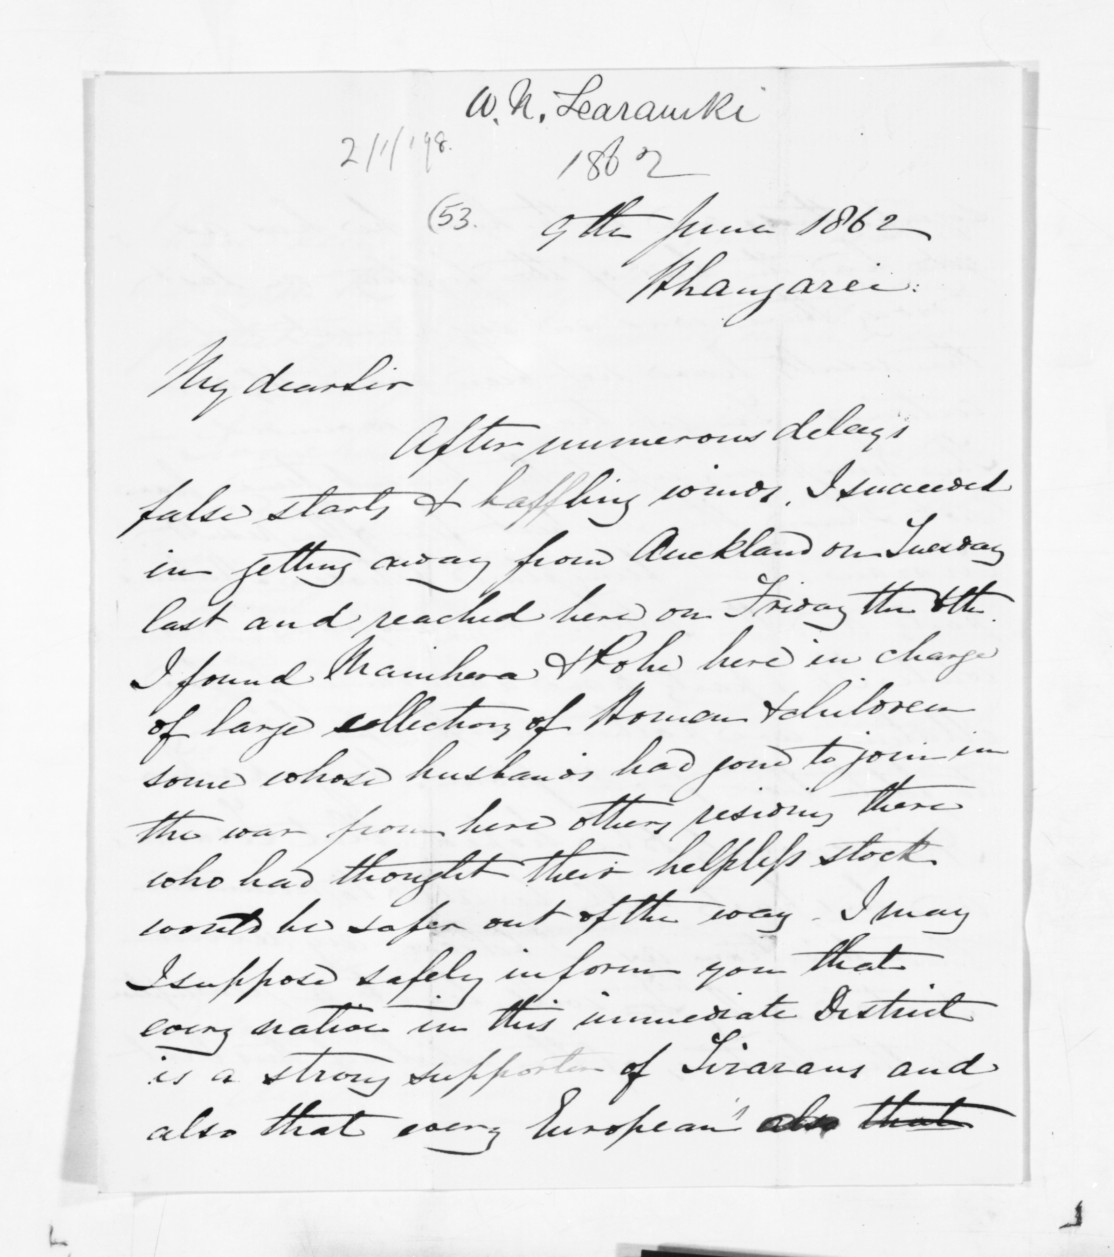 W. N. Searancke
1862
2/1/198.
(53.
9th June 1862
Whangarei:
My dear Sir
After numerous delays
false starts & baffling winds, I succeeded
in getting away from Auckland on Tuesday
last and reached here on Friday the 6th.
I found Manihera & Pohe here in charge
of large collections of Women & children
some whose husbands had gone to join in
the war from here others residing there
who had thought their helpless stock
would be safer out of the way. I may
I suppose safely inform you that
every native in this immediate District
is a strong supporter of Tirarau and
also that every European also that